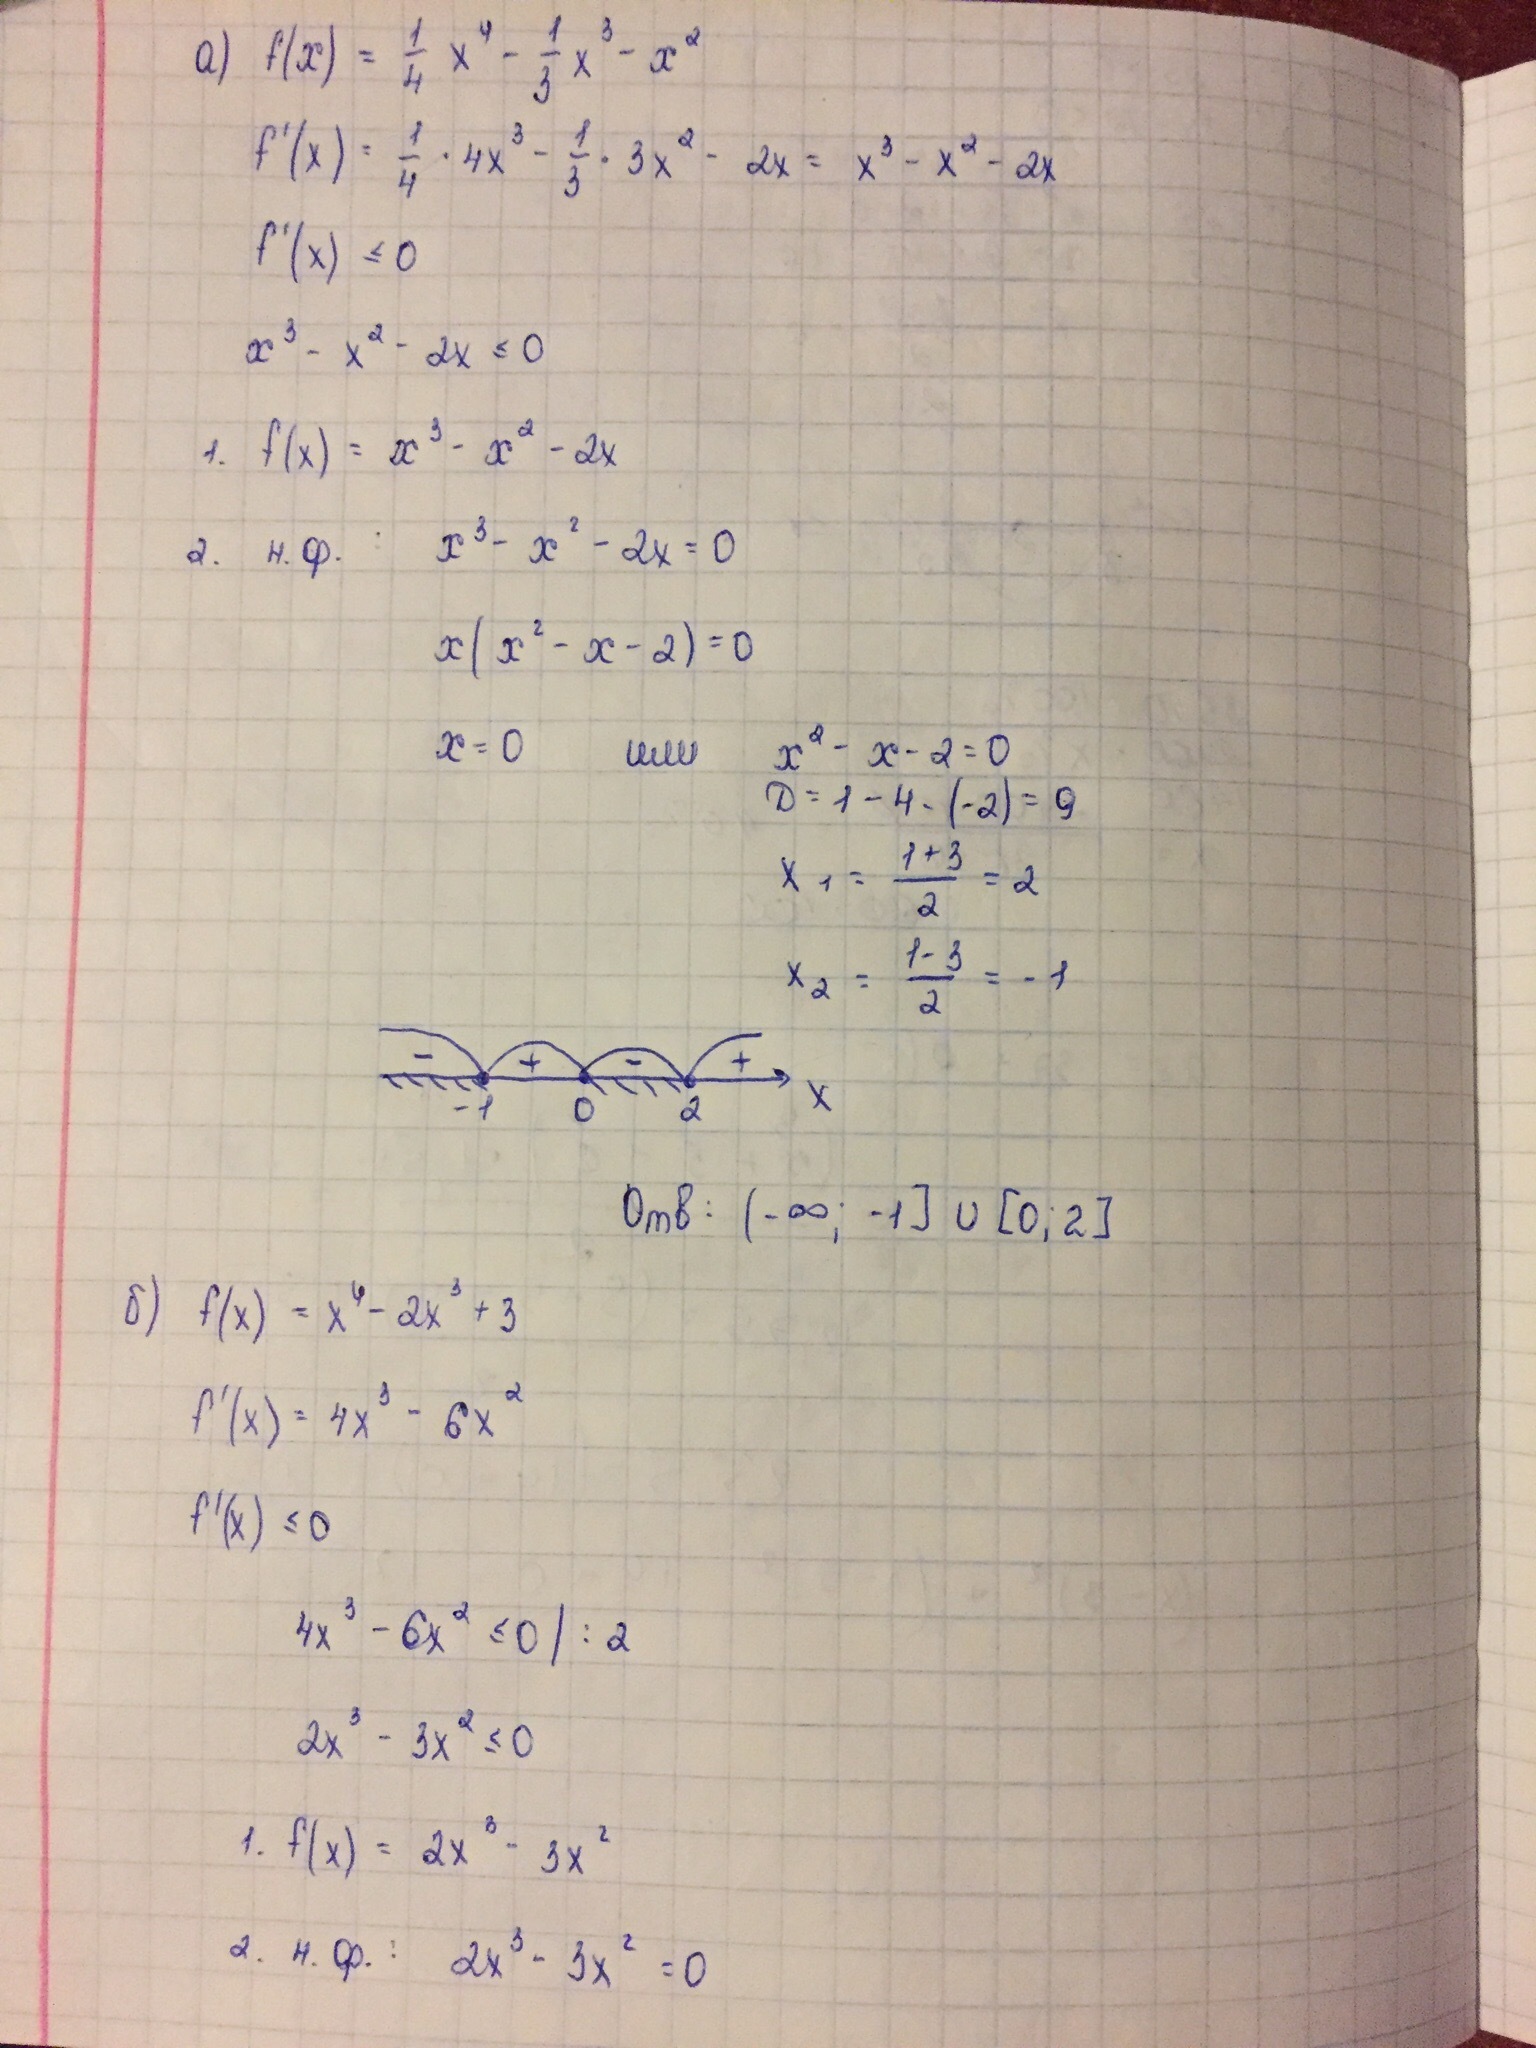 а) f(x) = 1/4 x⁴ - 1/3 x³ - x²
f'(x) = 1/4 · 4x³ - 1/3 · 3x² - 2x = x³ - x² - 2x
f'(x) ≤ 0
x³ - x² - 2x ≤ 0
1. f(x) = x³ - x² - 2x
2. н.ф. : x³ - x² - 2x = 0
x(x² - x - 2) = 0
x = 0 или x² - x - 2 = 0
D = 1 - 4 · (-2) = 9
x₁ = (1+3)/2 = 2
x₂ = (1-3)/2 = -1
- + - +
-1 0 2 x
Отв: (-∞; -1] ∪ [0; 2]
б) f(x) = x⁴ - 2x³ + 3
f'(x) = 4x³ - 6x²
f'(x) ≤ 0
4x³ - 6x² ≤ 0 | : 2
2x³ - 3x² ≤ 0
1. f(x) = 2x³ - 3x²
2. н.ф. : 2x³ - 3x² = 0